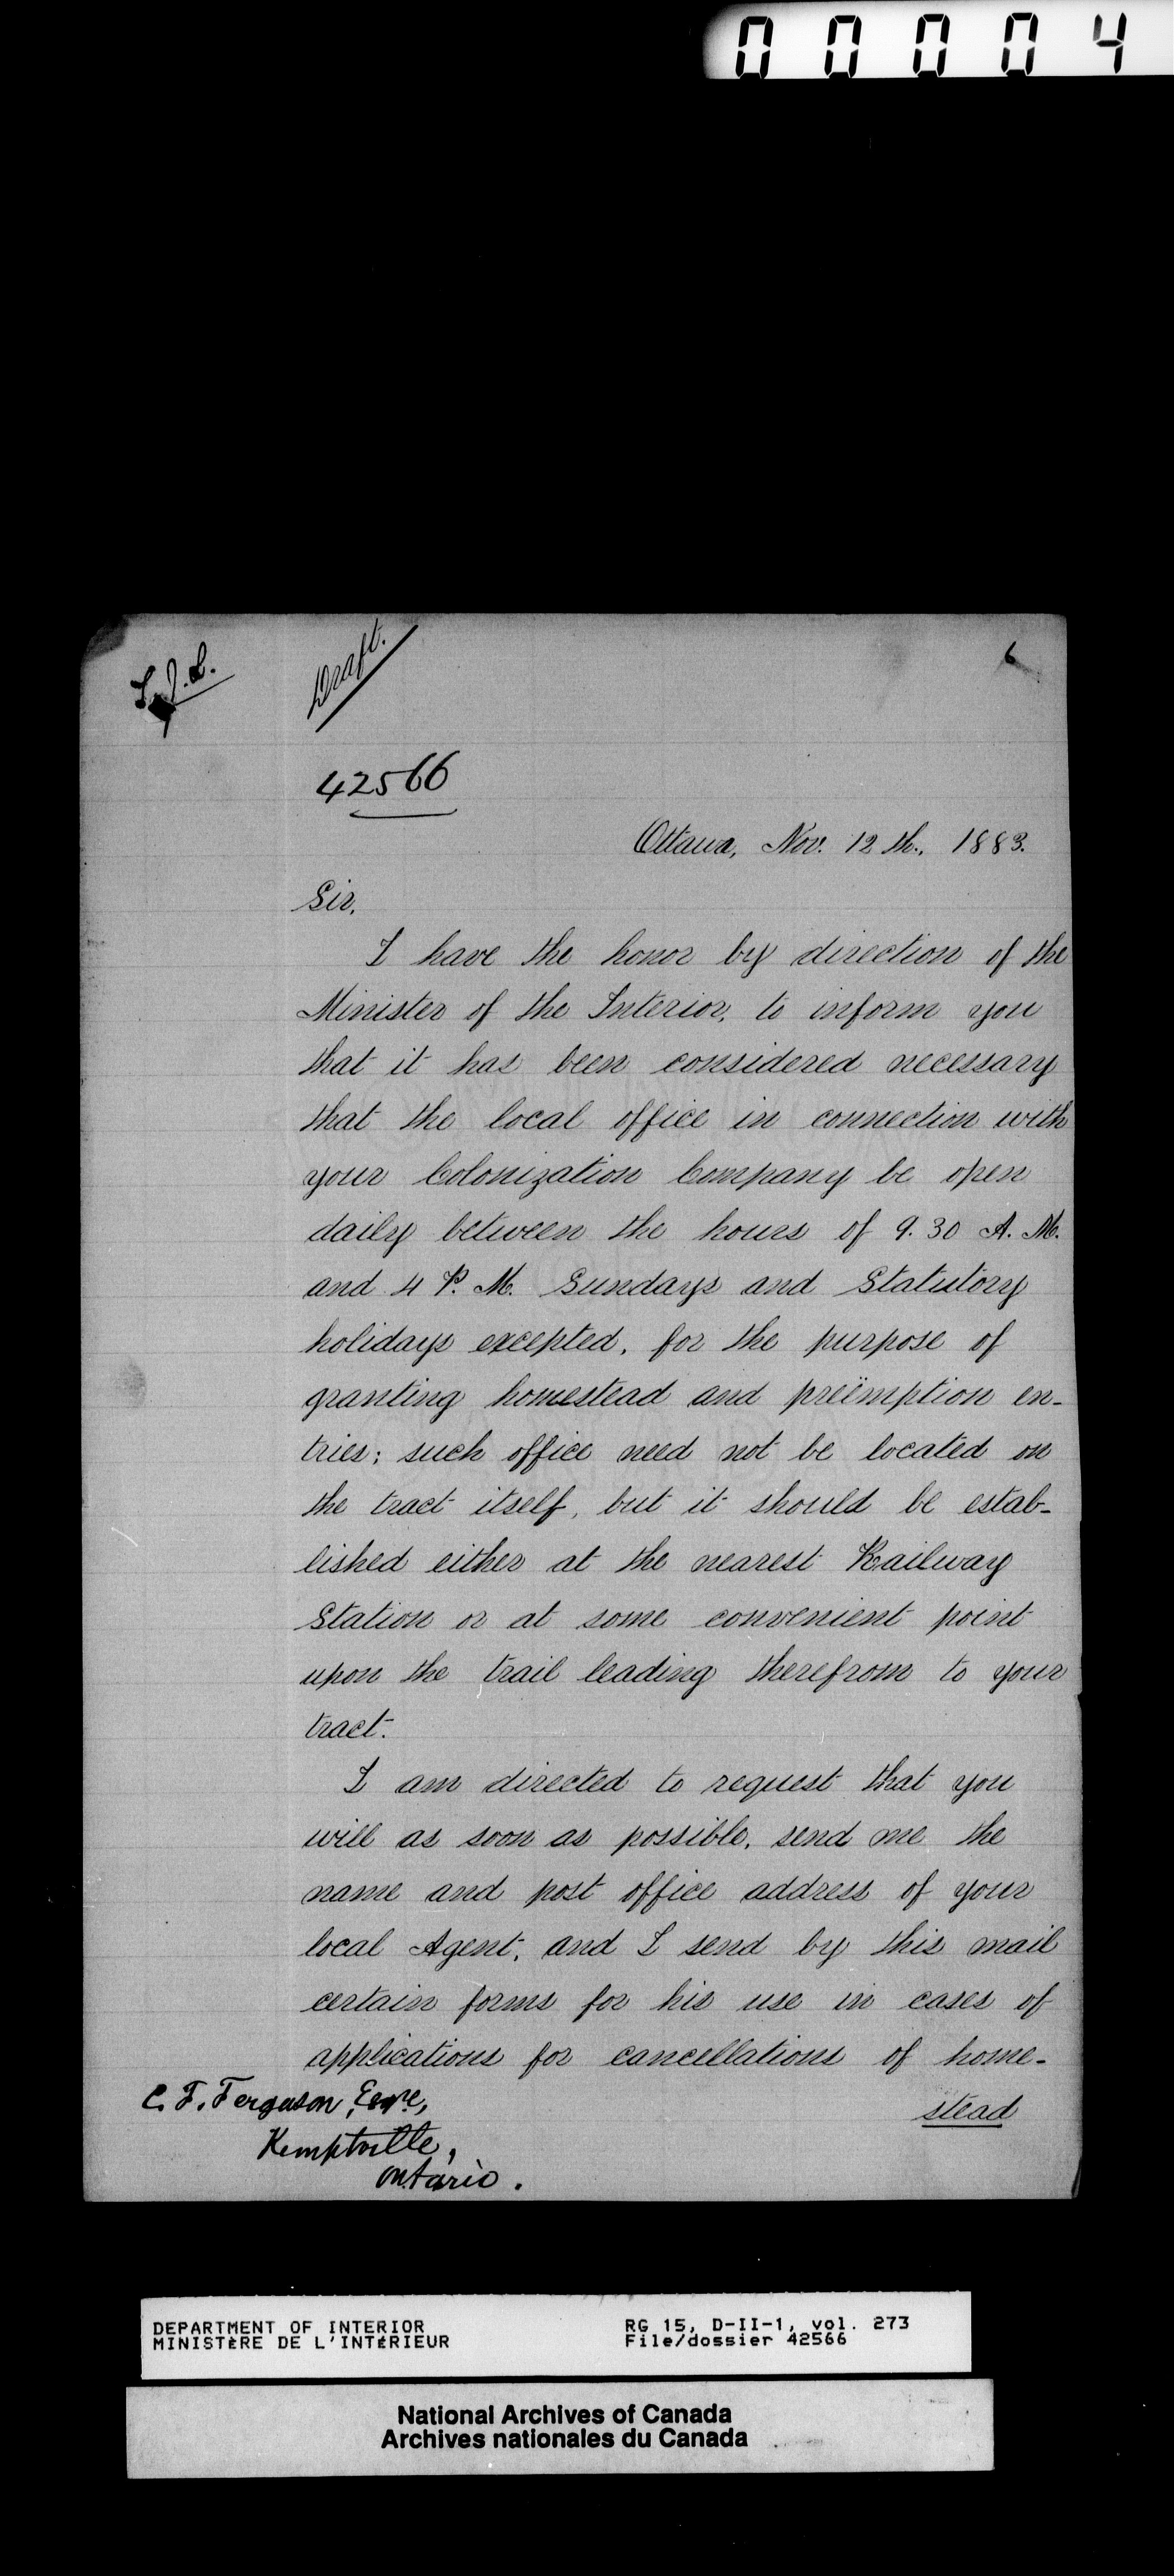 00004
Draft.
6
42566
Ottawa, Nov. 12th., 1883.
Sir,
I have the honor by direction of the
Minister of the Interior, to inform you
that it has been considered necessary
that the local office in connection with
your Colonization Company be open
daily between the hours of 9.30 A. M.
and 4 P. M. Sundays and Statutory
holidays excepted, for the purpose of
granting homestead and preëmption en-
tries; such office need not be located on
the tract itself, but it should be estab-
lished either at the nearest Railway
Station or at some convenient point
upon the trail leading therefrom to your
tract.
I am directed to request that you
will as soon as possible, send me the
name and post office address of your
local Agent, and I send by this mail
certain forms for his use in cases of
applications for cancellations of home-
stead
C. F. Ferguson, Esqre,
Kemptville,
Ontario.
DEPARTMENT OF INTERIOR
MINISTÈRE DE L'INTÉRIEUR
RG 15, D-II-1, vol. 273
File/dossier 42566
National Archives of Canada
Archives nationales du Canada